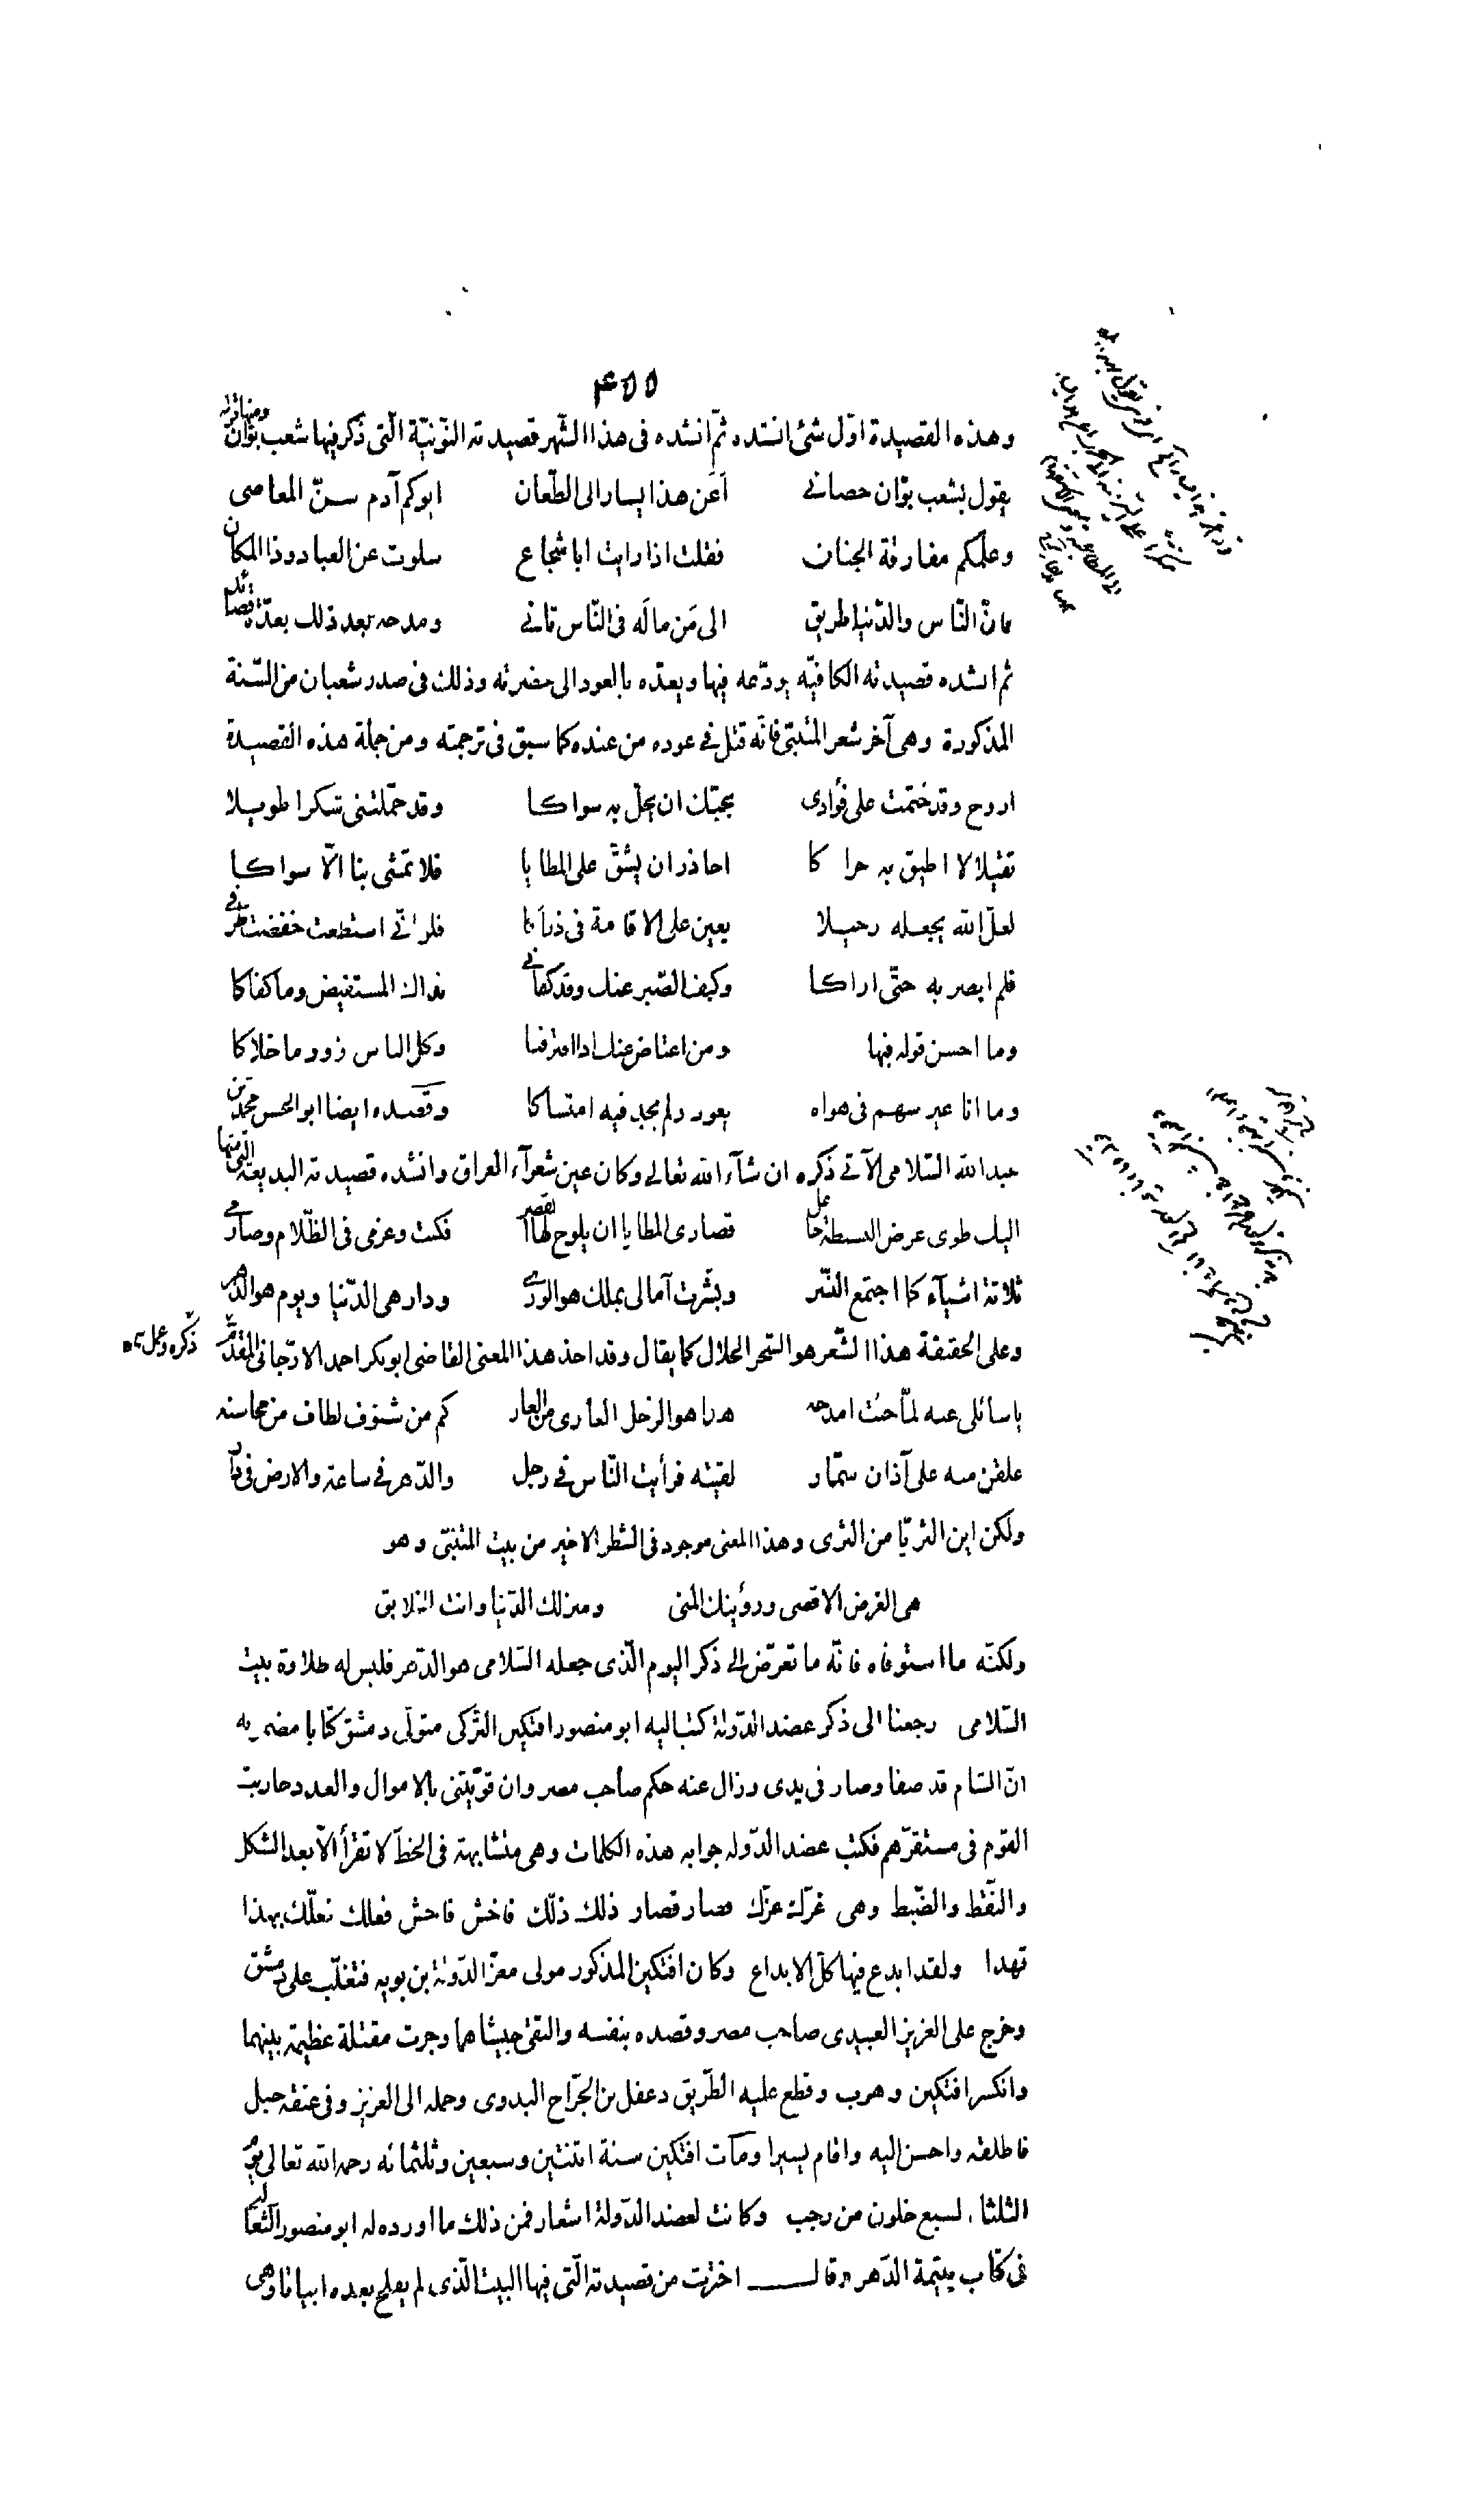 ۴۵۵
وهذه القصيدة اوّل شئ انشده ثمّ انشده فى هذا الشّهر قصيدته النّونيّة الّتى ذكر فيها شعب بوّان ومنها قوله
يقول بشعب بوّان حصانے اَعَن هذا يسار الى الطّعان ابوكم آدم سنّ المعاصى
وعلّمكم مفارقة الجنان فقلت اذا رايت ابا شجاع سلوت عن العباد وذا المكان
فانّ النّاس والدّنيا طريق الى مَن ما لَه فى النّاس ثانے ومدحه بعد ذلك بعدّة قصائد
ثم انشده قصيدته الكافيّه يودّعه فيها ويعدّه بالعود الى حضرته وذلك فى صدر شعبان من السّنة
المذكورة وهى آخر شعر المتنبّى فانّه قتل فے عوده من عنده كما سبق فى ترجمته ومن جملة هذه القصيدة
اروح وقد ختمت على فؤادى بحبّك ان يحلّ به سواكا وقد حمّلتنى شكرا طويلا
ثقيلا لا اطيق به حراكا احاذر ان يشقّ على المطايا فلا تمشى بنا الّا سواكا
لعلّ الله يجعله رحيلا يعين على الاقامة فى ذراكا فلو انّے استطعت خفضت طرفے
فلم ابصر به حتّى اراكا وكيف الصّبر عنك وقد كفانے نداك المستفيض وما كفاكا
وما احسن قوله فيها ومن اعتاض عنك اذا افترقنا وكل الناس زور ما خلاكا
وما انا غير سهم فى هواه يعود ولم يجد فيه امتساكا وقصده ايضا ابو الحسن محمّد بن
عبد الله السّلامى الآتے ذكره ان شآء الله تعالى وكان عين شعرآء العراق وانشده قصيدته البديعة الّتى منها
اليك طوى عرض البسيطة جاعل قصارى المطايا ان يلوح لها القصر فكنت وعزمى فى الظّلام وصارمے
ثلاثة اشيآء كما اجتمع النّسر وبشّرت آمالى بملك هو الورى ودار هى الدّنيا ويوم هو الدّهر
وعلى الحقيقة هذا الشّعر هو السّحر الحلال كما يقال وقد اخذ هذا المعنى القاضى ابو بكر احمد الارّجانى المقدّم ذكره وعمل
يا سائلى عنه لمّا جئت امدحه هذا هو الرجل العارى من العار كم من شنوف لطاف من محاسنه
علقن منه على آذان سمّار لقيته فرأيت النّاس فے رجل والدّهر فے ساعة والارض فى دار
ولكن اين الثريّا من الثرى وهذا المعنى موجود فى الشّطر الاخير من بيت المتنبّى وهو
هى الغرض الاقصى ورؤيتك المنى ومنزلك الدّنيا وانت الخلايق
ولكنّه ما استوفاه فانّه ما تعرّض الى ذكر اليوم الّذى جعله السّلامى هو الدّهر فليس له طلاوة بيت
السّلامى رجعنا الى ذكر عضد الدّولة كتب اليه ابو منصور افتكين التّركى متولّى دمشق كتابا مضمونه
انّ الشام قد صفا وصار فى يدى وزال عنه حكم صاحب مصر وان قوّيتنى بالاموال والعدد حاربت
القوم فى مستقرّهم فكتب عضد الدّوله جوابه هذه الكلمات وهى متشابهة فى الخطّ لا تقرأ الّا بعد الشكل
والنّقط والضّبط وهى غرّك عزّك فصار قصار ذلك ذلّك فاخش فاحش فعلك فعلّك بهذا
تهدا ولقد ابدع فيها كل الابداع وكان افتكين المذكور مولى معزّ الدّولة بن بويه فتغلّب على دمشق
وخرج على العزيز العبيدى صاحب مصر وقصده بنفسه والتقى جيشاهما وجرت مقتلة عظيمة بينهما
وانكسر افتكين وهرب وقطع عليه الطّريق دغفل بن الجرّاح البدوى وحمله الى العزيز وفى عنقه حبل
فاطلقه واحسن اليه واقام يسيرا ومات افتكين سنة اثنتين وسبعين وثلثمائه رحمه الله تعالى يوم
الثلثاء لسبع خلون من رجب وكانت لعضد الدّولة اشعار فمن ذلك ما اورده له ابو منصور الثّعالبے
فى كتاب يتيمة الدّهر وقال اخترت من قصيدته الّتى فيها البيت الّذى لم يفلح بعده ابياتا وهى